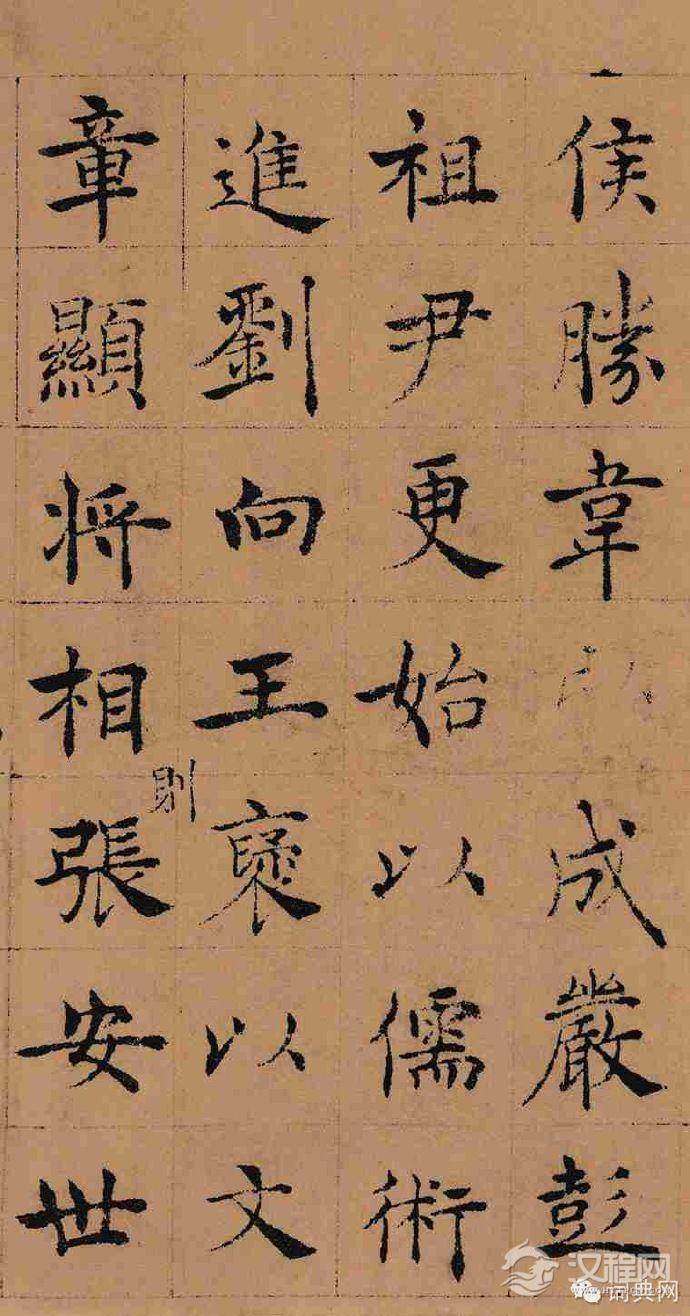 侯勝韋成嚴彭
祖尹更始以儒術
進劉向王褒以文
則
章顯将相張安世
汉程网
词典网